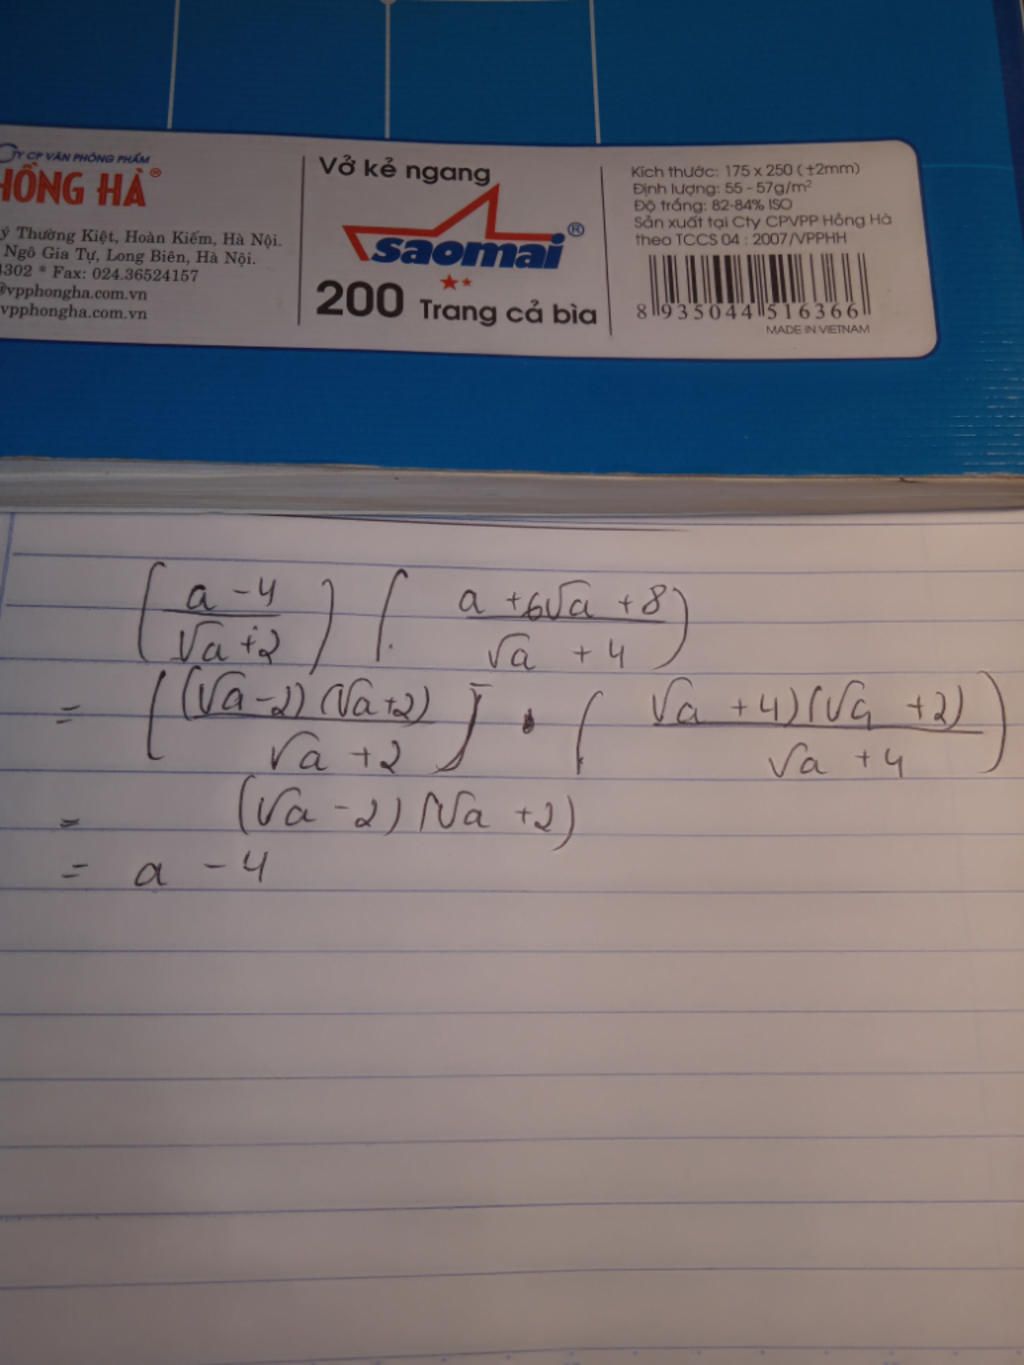 CTY CP VĂN PHÒNG PHẨM
HỒNG HÀ®
ý Thường Kiệt, Hoàn Kiếm, Hà Nội.
Ngô Gia Tự, Long Biên, Hà Nội.
4302 * Fax: 024.36524157
@vpphongha.com.vn
vpphongha.com.vn
Vở kẻ ngang
saomai®
200 Trang cả bìa
Kích thước: 175 x 250 (±2mm)
Định lượng: 55 - 57g/m²
Độ trắng: 82-84% ISO
Sản xuất tại Cty CPVPP Hồng Hà
theo TCCS 04 : 2007/VPPHH
8 935044 516366
MADE IN VIETNAM
((a - 4)/(√a + 2)) . ((a + 6√a + 8)/(√a + 4))
= [((√a - 2)(√a + 2))/(√a + 2)] . ((√a + 4)(√a + 2)/(√a + 4))
= (√a - 2)(√a + 2)
= a - 4